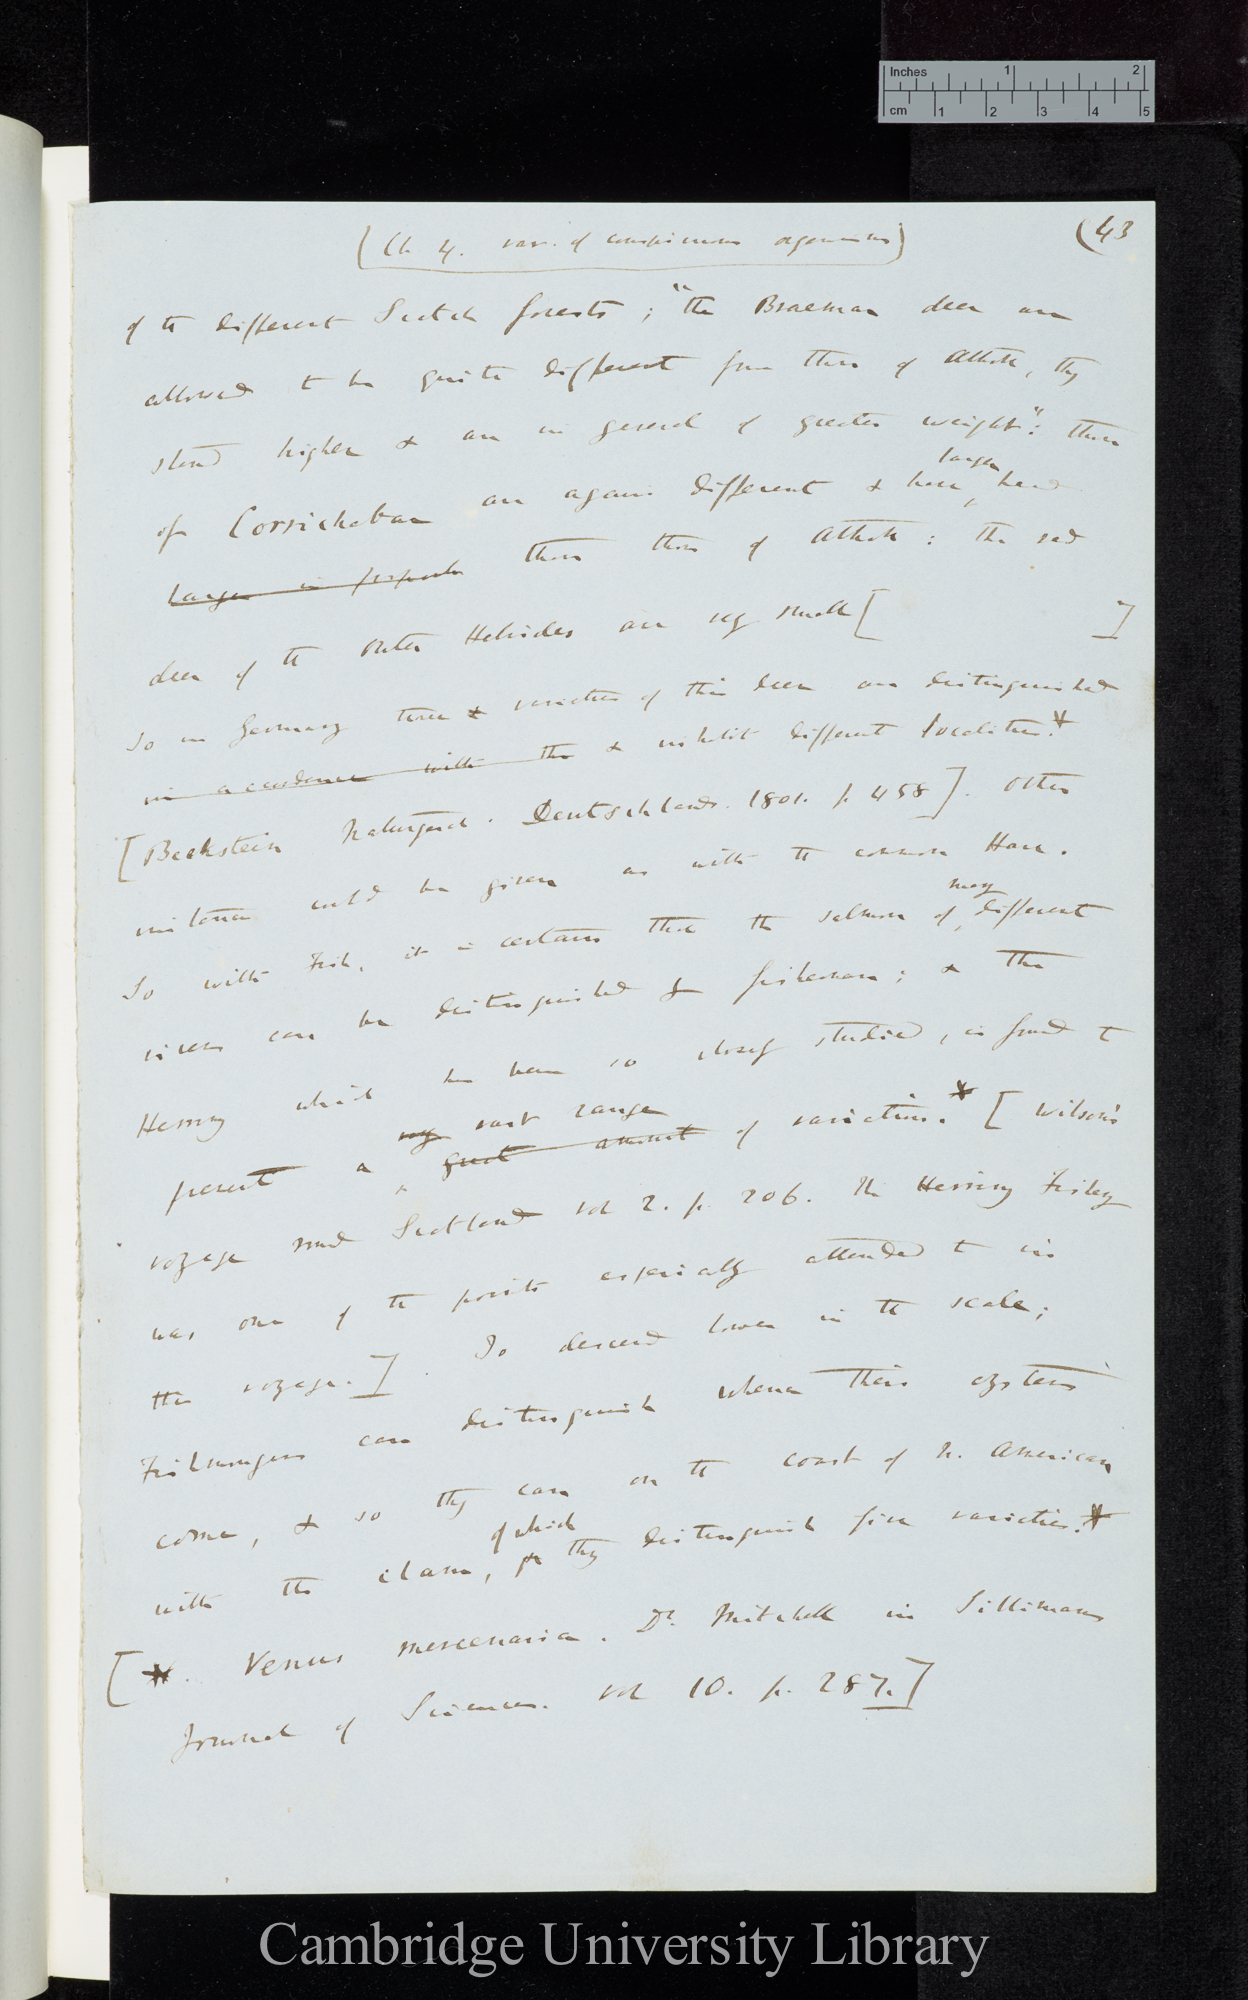 Inches 1 2
cm 1 2 3 4 5
(Ch 4. var. of conspicuous organisms)
(43
of the different Scotch forests; "the Braemar deer are
allowed to be quite different from those of Athol, they
stand higher & are in general of greater weight": those
larger
of Corrichebar are again different & have heads
larger in than those of Athol: the red
deer of the Outer Hebrides are very small [ ]
So in Germany three varieties of this deer are distinguished
in accordance with the & inhabit different localities.*
[Bechstein Naturgesch. Deutschlands. 1801. p. 458]. Other
instances could be given as with the common Hare.
many
So with Fish, it is certain that the salmon of different
rivers can be distinguished by fishermen; & the
Herring which has been so closely studied, is found to
very vast range
present a great amount of variation.* [Wilson's
voyage round Scotland vol 2. p. 206. The Herring Fishery
was one of the points especially attended to in
this voyage.]. To descend lower in the scale;
Fishmongers can distinguish whence their oysters
come, & so they can on the coast of N. American
of which
with the clam, they distinguish five varieties.*
[*. Venus mercenaria. Dr. Mitchell in Sillimans
Journal of Sciences. vol 10. p. 287.]
Cambridge University Library